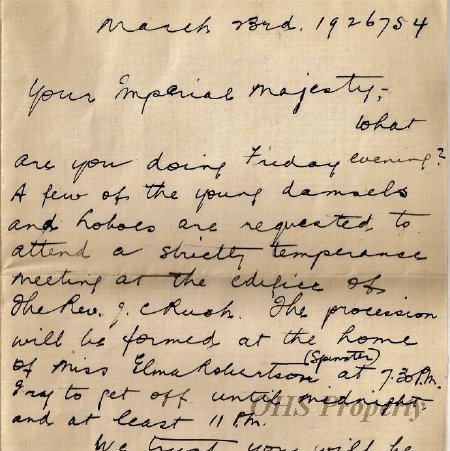 March 23rd. 1926754
Your Imperial Majesty,-
What
are you doing Friday evening?
A few of the young damsels
and hoboes are requested to
attend a strictly temperance
meeting at the edifice of
The Rev. J. C Rush. The procession
will be formed at the home
(Spinster)
of Miss Elma Robertson at 7.30 P.M.
Try to get off until midnight
and at least 11 P.M.
OHS Property
We trust you will be